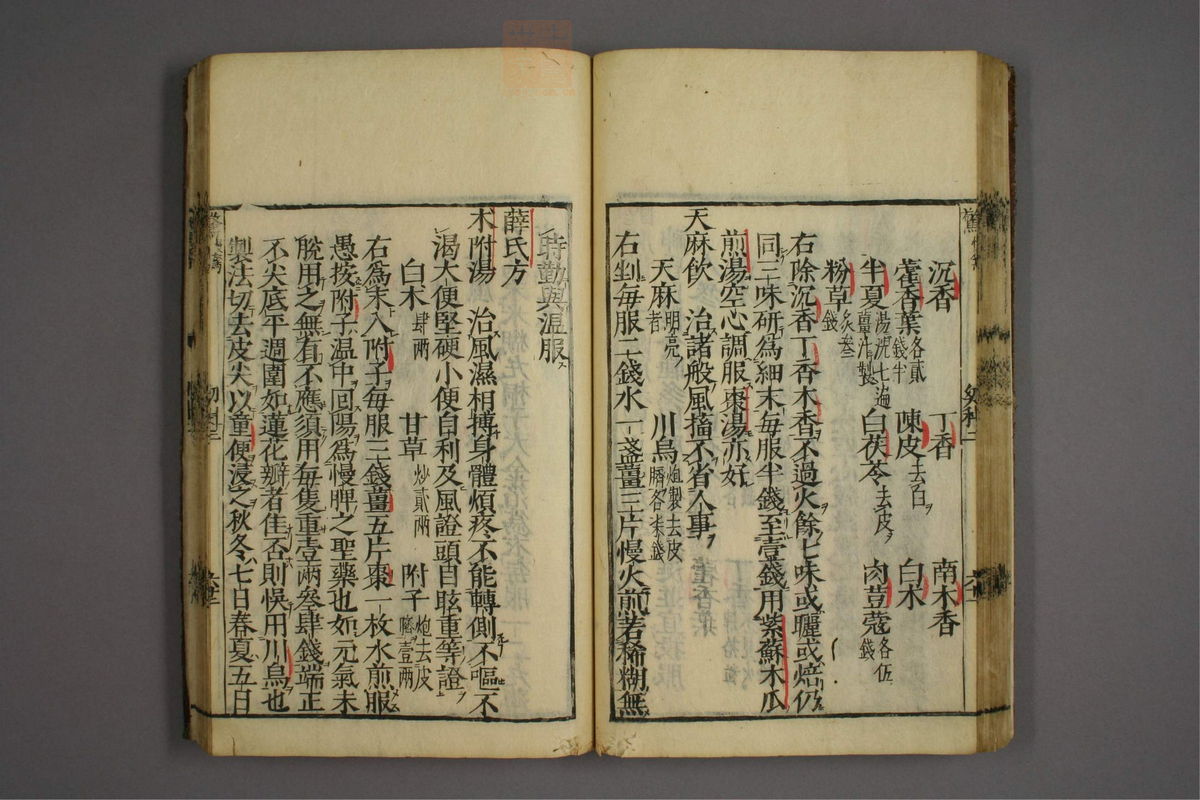 沉香　丁香　南木香
藿香葉各貳錢半　陳皮去白　白朮
半夏湯洗七遍薑汁製　白茯苓去皮　肉荳蔻各伍錢
粉草炙叁錢
右除沉香丁香木香不過火餘七味或䁻或焙仍
同三味研為細末每服半錢至壹錢用紫蘇木瓜
煎湯空心調服棗湯亦好
天麻飲　治諸般風搐不省人事
天麻明亮者　川烏炮製去皮臍各柒錢
右剉每服二錢水一盞薑三片慢火煎若稀糊無
時勤與溫服
薛氏方
朮附湯　治風濕相搏身體煩疼不能轉側不嘔不
渴大便堅硬小便自利及風證頭目眩重等證
白朮肆兩　甘草炒貳兩　附子炮去皮臍壹兩
右為末入附子每服三錢薑五片棗一枚水煎服
愚按附子溫中回陽為慢脾之聖藥也如元氣未
脫用之無有不應須用每隻重壹兩叁肆錢端正
不尖底平週圍如蓮花瓣者佳否則悞用川烏也
製法切去皮尖以童便浸之秋冬七日春夏五日